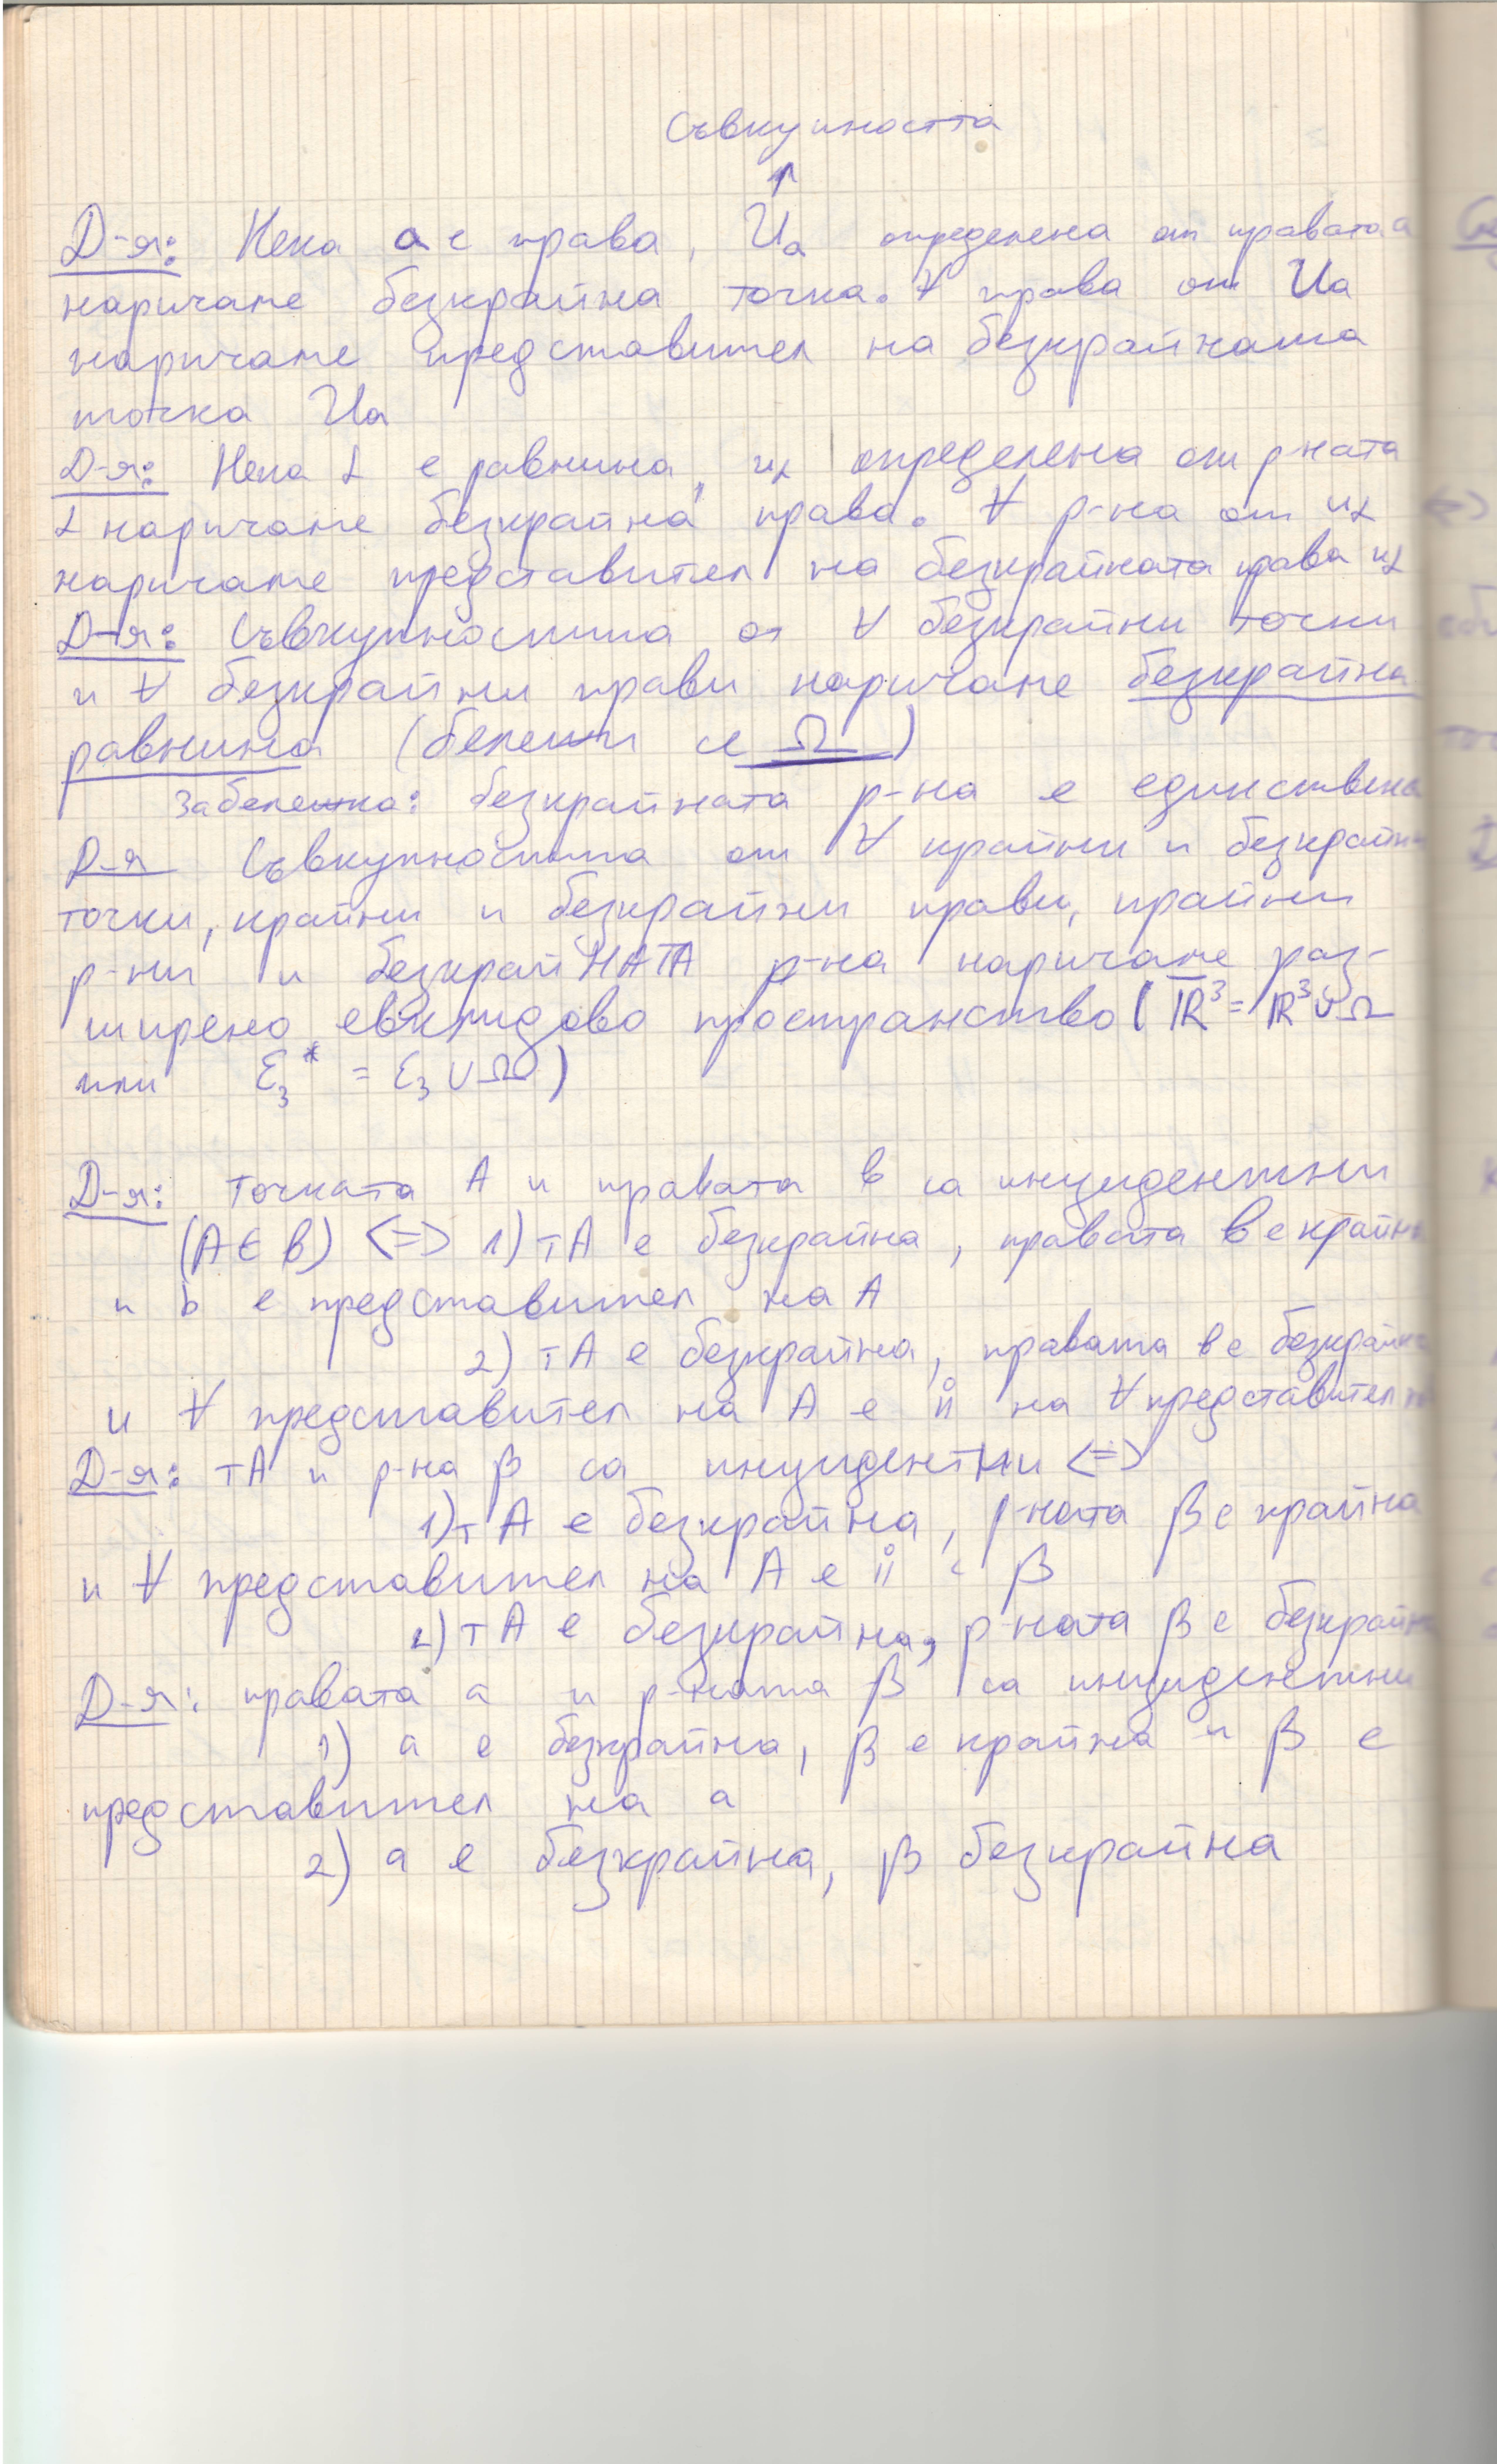 Съвкупността
↑
Д-я: Нека a е права, Ua определена от правата a
наричаме безкрайна точка. ∀ права от Ua
наричаме представител на безкрайната
точка Ua
Д-я: Нека α е равнина, uα определена от р-ната
α наричаме безкрайна права. ∀ р-на от uα
наричаме представител на безкрайната права uα
Д-я: Съвкупността от ∀ безкрайни точки
и ∀ безкрайни прави наричаме безкрайна
равнина (бележи се Ω)
Забележка: безкрайната р-на е единствена
Д-я Съвкупността от ∀ крайни и безкрайни
точки, крайни и безкрайни прави, крайни
р-ни и безкрайНАТА р-на наричаме раз-
ширено евклидово пространство (R̅³ = R³ ∪ Ω
или Ɛ₃* = Ɛ₃ ∪ Ω)
Д-я: Точката A и правата b са инцидентни
(A ∈ b) <=> 1) тA е безкрайна, правата b е крайна
и b е представител на A
2) тA е безкрайна, правата b е безкрайна
и ∀ представител на A е || на ∀ представител на
Д-я: тA и р-на β са инцидентни <=>
1) тA е безкрайна, р-ната β е крайна
и ∀ представител на A е || с β
2) тA е безкрайна, р-ната β е безкрайна
Д-я: правата a и р-ната β са инцидентни
1) a е безкрайна, β е крайна и β е
представител на a
2) a е безкрайна, β безкрайна